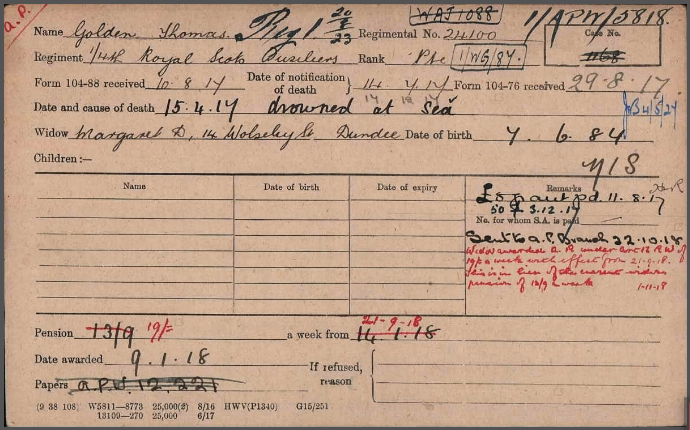 A.P.
WAJ 1088
1/APW/5818.
Name Golden Thomas. Reg 1 20/8/23 Regimental No. 24100
Case No.
1168
Regiment 1/4th Royal Scots Fusiliers Rank Pte 1/WG/87.
Form 104-88 received 10.8.17 Date of notification of death } 14.7.17 Form 104-76 received 29.8.17.
Date and cause of death 15.4.17 drowned at Sea
Widow Margaret D, 14 Wolseley St. Dundee Date of birth 7.6.84
Children:— NIS
Name Date of birth Date of expiry Remarks
£5 grant pd. 11.8.17
3.12.17
No. for whom S.A. is paid
Sent to A.P. Branch 22.10.18
Widow awarded A.P. under Art 13 R.W. of
19/- a week with effect from 21-9-18.
This is in lieu of the current widows
pension of 13/9 a week
1-11-18
21-9-18
Pension 13/9 19/= a week from 14.1.18
Date awarded 9.1.18 If refused, reason
Papers A.P.W. 12,221
(9 38 108) W5811—8773 25,000(2) 8/16 HWV(P1340) G15/251
13109—270 25,000 6/17